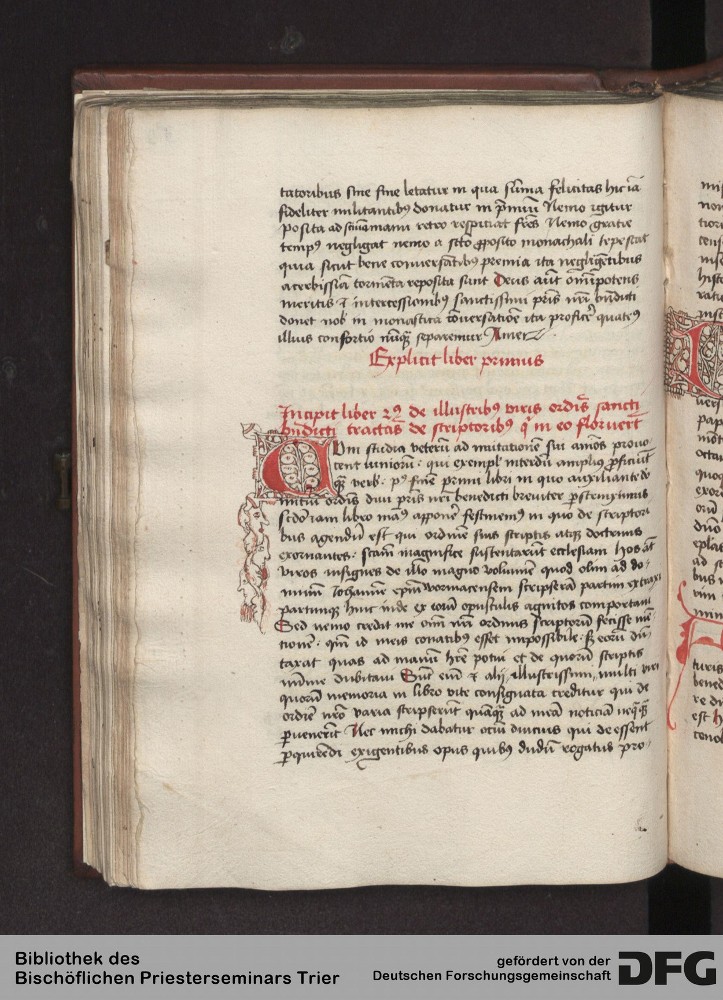 tatoribus sine fine letatur in qua su᷈ma felicitas hic iā
fideliter militantibꝯ donatur in p̄miū Nemo igitur
posita ad stiuā manu retro respiciat fr̄es Nemo gratie
tempꝯ negligat nemo a scō ꝓposito monachali tepescat
quia sicut bene conversātibꝯ premia ita negligētibus
acerbissīa tormēta reposita sunt Deus aūt om̄ipotens
meritis ⁊ intercessionibꝯ sanctissimi pr̄is nr̄i bn̄dicti
donet nob̄ in monastica cōuersatiōe ita proficeꝛ quatēꝯ
illius consortio nūqꝫ separemur Amen
Explicit liber primus
Incipit liber 2ꝯ de illustribꝯ viris ordīs sancti
bn̄dicti tractās de scriptoribꝯ q̄ in eo floruert̄
Cum studia veterū ad imitationem sui aīos prouo-
cent iuniorū: qui exempl̄ interdū amplius ꝓficiūt
qꝫ verb̄: pꝯ finē primi libri in quo
ordīs diui pr̄is nr̄i benedicti breuiter ꝑstrinximus
scdō iam libro manꝯ apponeꝛ festinemꝯ in quo de scriptori
bus agendū est qui ordinē suis scriptis atqꝫ doctrinis
exornantes: scām magnifice sustentarūt ecclesiam Hos aūt
viros insignes de illo magno volumine quod olim ad do-
minum Iohannem ep̄m wormacensem scripserā partim extraxi
partimqꝫ hinc inde ex eorū opusculis agnitos comportaui
Sed nemo credit me om̄iū nr̄i ordinis scriptorū fecisse mē
tionē: qm̄ id meis conatibus esset impossibile: sꝫ eorū dū
taxat quas ad manū hr̄e potui et de quorū scriptis
minime dubitaui Sūt em̄ ⁊ alij illustrissimi, multi viri
quorū memoria in libro vite consignata creditur qui de
ordīe nr̄o varia scripserūt quāqꝫ ad meā noticiā neqꝫqꝫ
ꝑuenerīt Nec michi dabatur ociū diucius qui deessent
ꝑquirēdi exigentibus opus quibꝯ dudū rogatus pro-
Bibliothek des
Bischöflichen Priesterseminars Trier
gefördert von der
Deutschen Forschungsgemeinschaft DFG